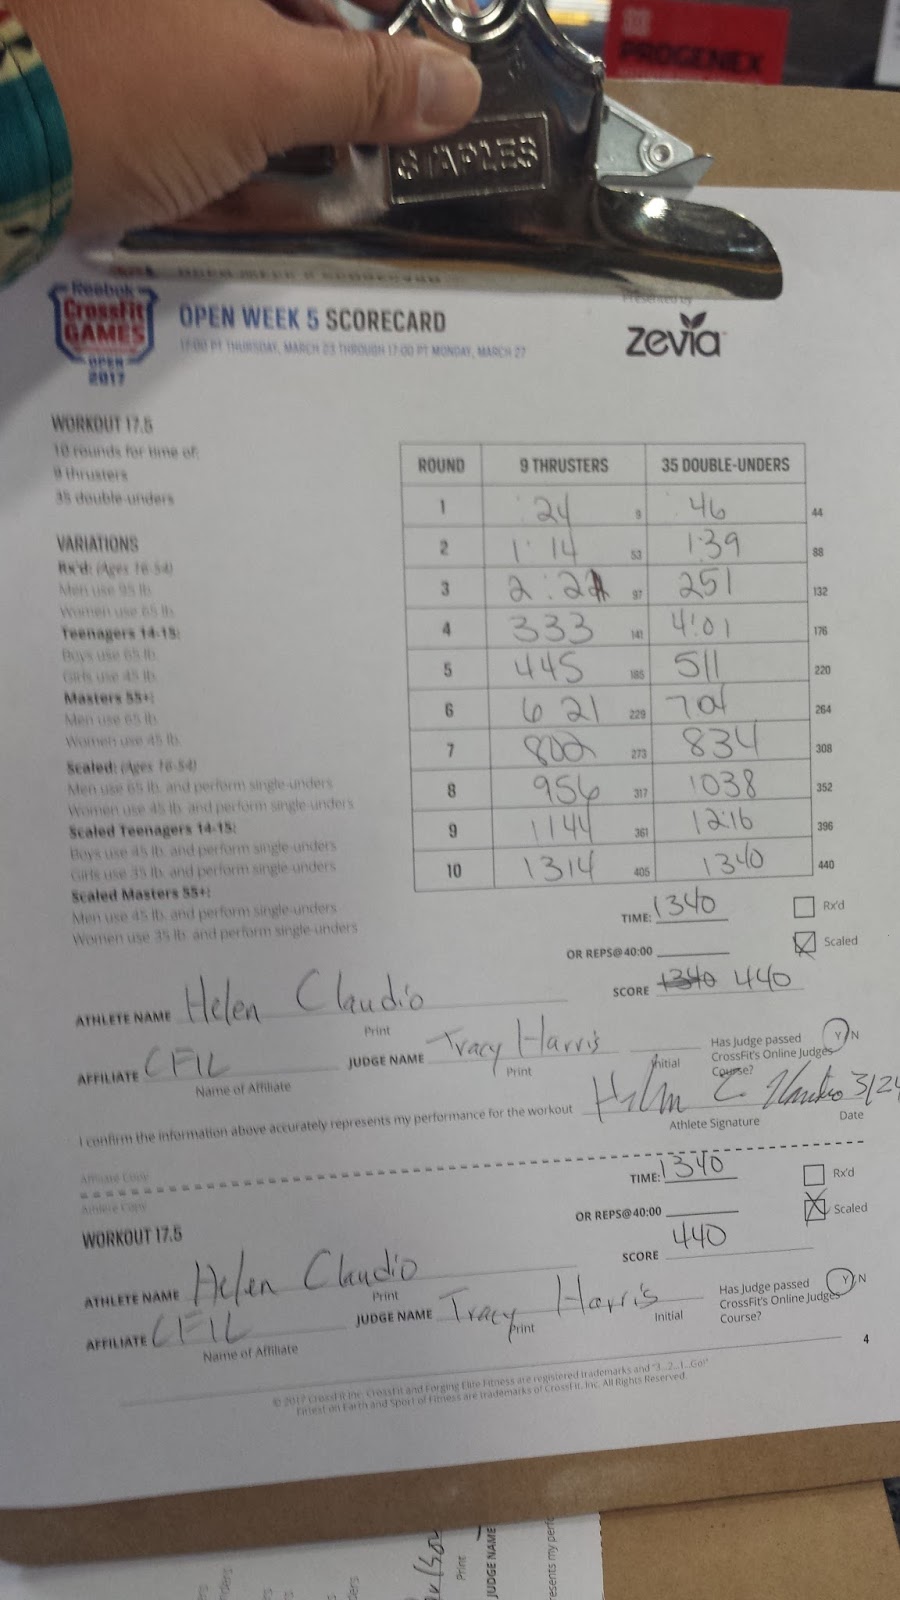 PROGENEX
STAPLES
Reebok
CrossFit
GAMES
OPEN
2017
OPEN WEEK 5 SCORECARD
17:00 PT THURSDAY, MARCH 23 THROUGH 17:00 PT MONDAY, MARCH 27
Presented by
zevia
WORKOUT 17.5
10 rounds for time of:
9 thrusters
35 double-unders
VARIATIONS
Rx'd: (Ages 16-54)
Men use 95 lb.
Women use 65 lb.
Teenagers 14-15:
Boys use 65 lb.
Girls use 45 lb.
Masters 55+:
Men use 65 lb.
Women use 45 lb.
Scaled: (Ages 16-54)
Men use 65 lb. and perform single-unders
Women use 45 lb. and perform single-unders
Scaled Teenagers 14-15:
Boys use 45 lb. and perform single-unders
Girls use 35 lb. and perform single-unders
Scaled Masters 55+:
Men use 45 lb. and perform single-unders
Women use 35 lb. and perform single-unders
ROUND 9 THRUSTERS 35 DOUBLE-UNDERS
1 :24 9 46 44
2 1:14 53 1:39 88
3 2:22 97 251 132
4 333 141 4:01 176
5 445 185 511 220
6 621 229 704 264
7 802 273 834 308
8 956 317 1038 352
9 1144 361 1216 396
10 1314 405 1340 440
TIME: 1340 Rx'd
OR REPS@40:00 Scaled
SCORE 1340 440
ATHLETE NAME Helen Claudio
Print
AFFILIATE CFIL JUDGE NAME Tracy Harris
Name of Affiliate Print Initial
Has Judge passed
CrossFit's Online Judges
Course? Y N
I confirm the information above accurately represents my performance for the workout
3/24
Athlete Signature Date
Affiliate Copy
Athlete Copy
TIME: 1340 Rx'd
WORKOUT 17.5
OR REPS@40:00 Scaled
SCORE 440
ATHLETE NAME Helen Claudio
Print
AFFILIATE CFIL JUDGE NAME Tracy Harris
Name of Affiliate Print Initial
Has Judge passed
CrossFit's Online Judges
Course? Y N
4
© 2017 CrossFit Inc. CrossFit and Forging Elite Fitness are registered trademarks and "3...2...1...Go!"
Fittest on Earth and Sport of Fitness are trademarks of CrossFit, Inc. All Rights Reserved.
Print
JUDGE NAME